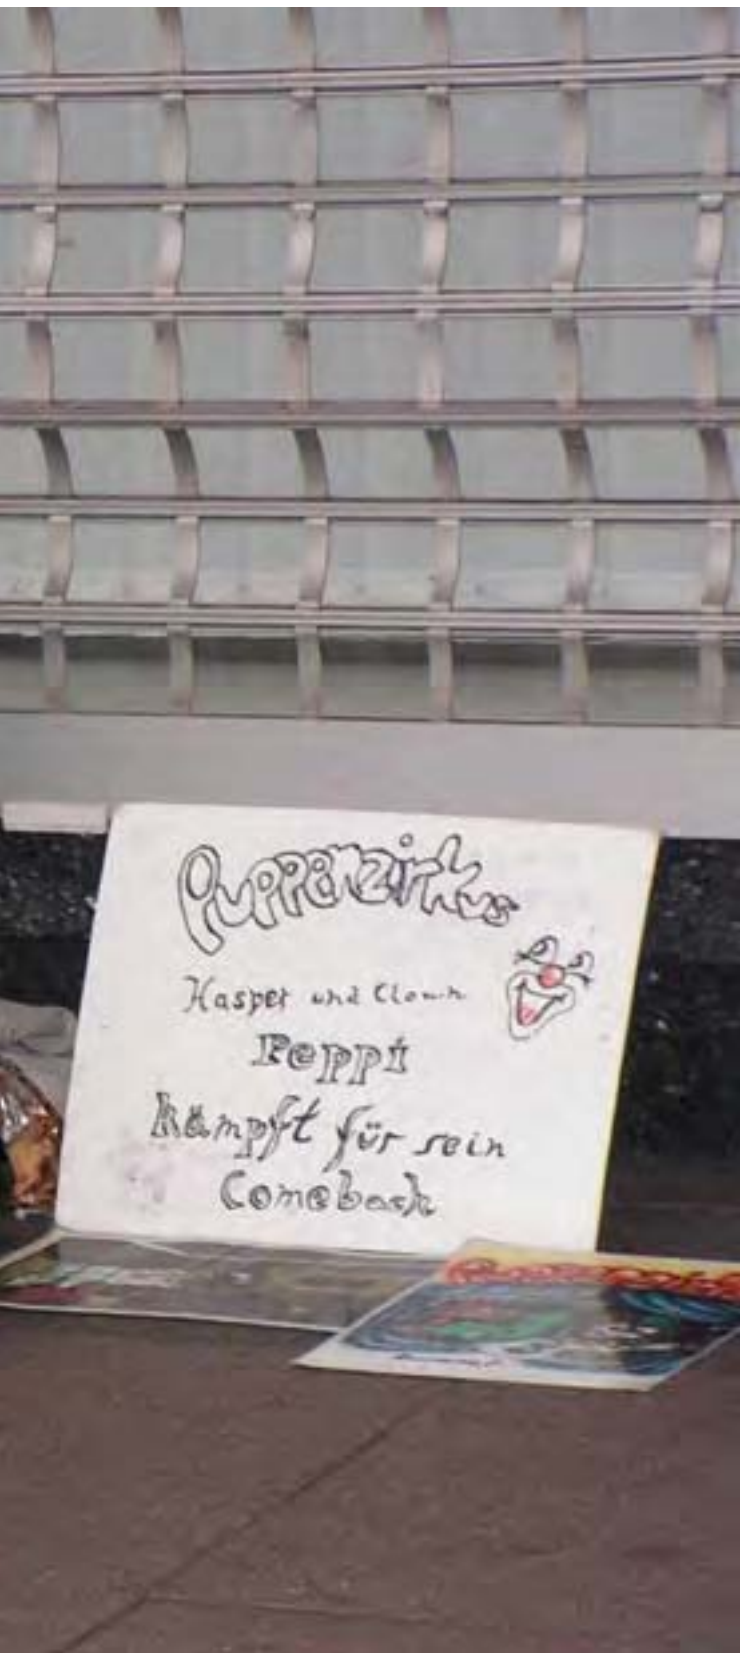 Puppenzirkus
Kasper und Clown
Peppi
kämpft für sein
Comeback